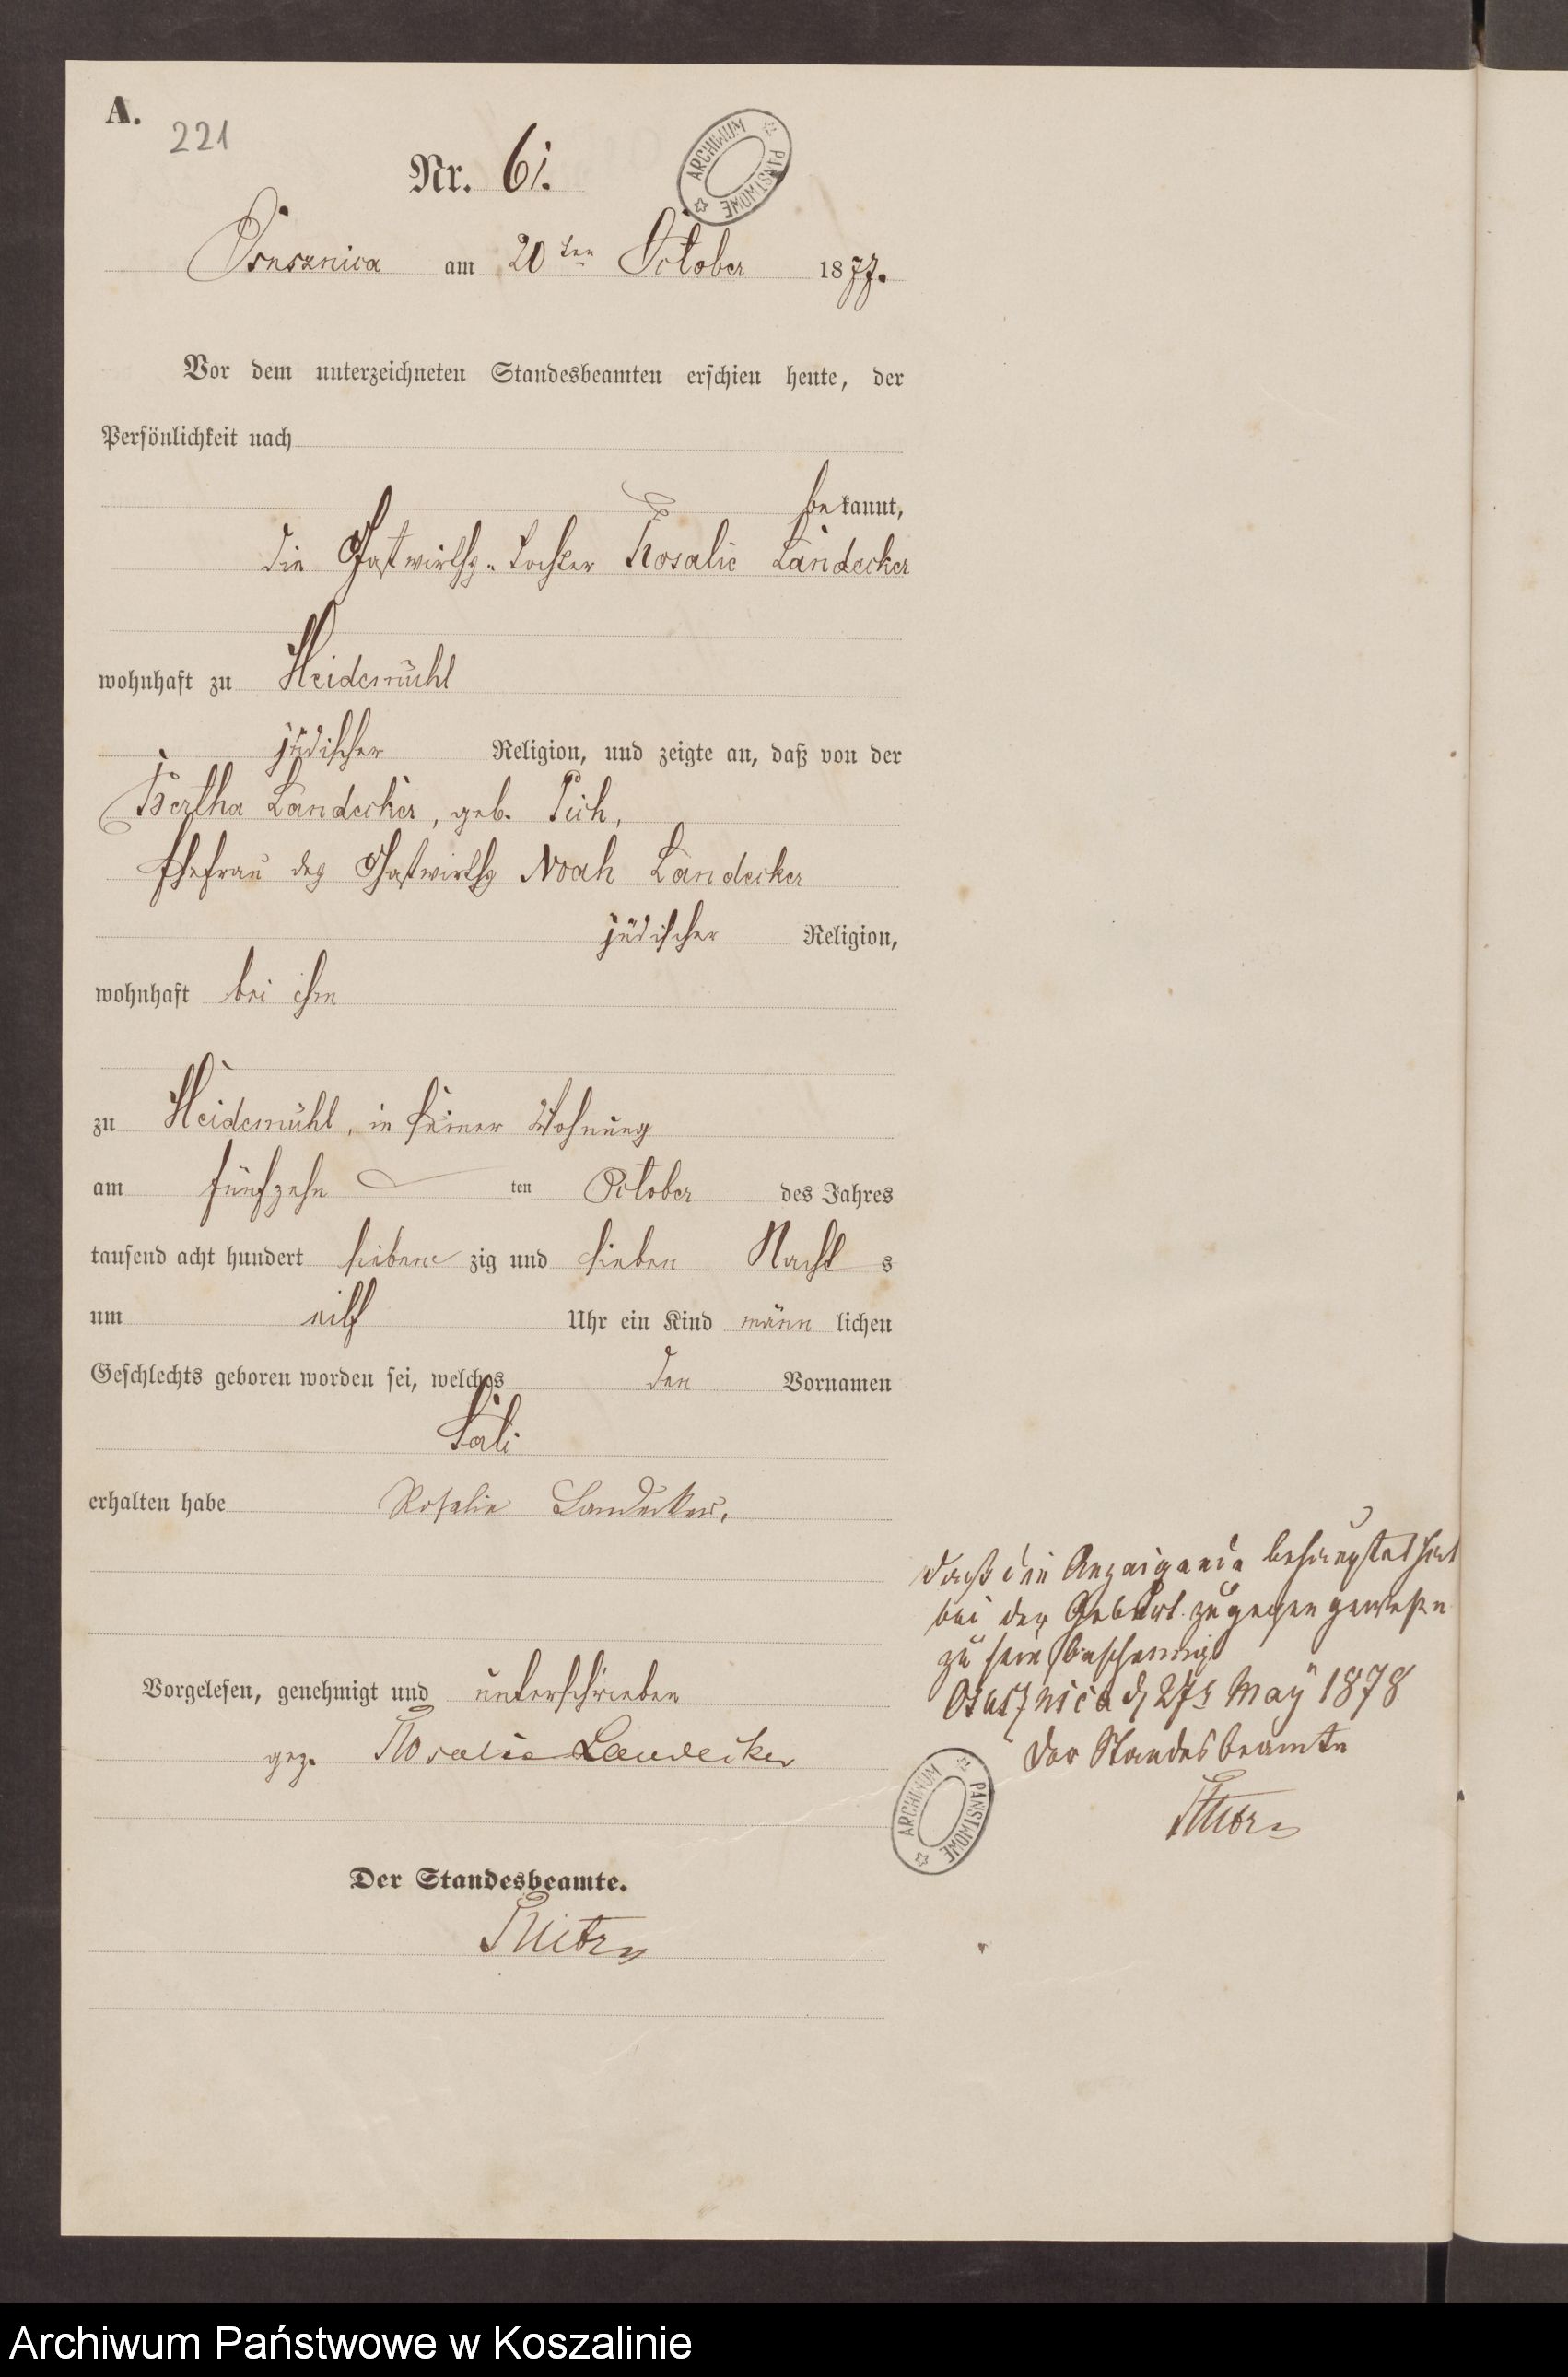 A.
221
Nr. 61.
ARCHIWUM PAŃSTWOWE
Osusznica am 20ten October 1877.
Vor dem unterzeichneten Standesbeamten erschien heute, der
Persönlichkeit nach
bekannt,
die Gastwirths-Tochter Rosalie Landecker
wohnhaft zu Heidemühl
jüdischer Religion, und zeigte an, daß von der
Bertha Landecker, geb. Pich,
Ehefrau des Gastwirths Noah Landecker
jüdischer Religion,
wohnhaft bei ihm
zu Heidemühl, in seiner Wohnung
am fünfzehn ten October des Jahres
tausend acht hundert sieben zig und sieben Nacht s
um eilf Uhr ein Kind männ lichen
Geschlechts geboren worden sei, welches den Vornamen
Sali
erhalten habe Rosalie Landecker.
Vorgelesen, genehmigt und unterschrieben
gez. Rosalie Landecker
Der Standesbeamte.
daß die Anzeigende behauptet hat
bei der Geburt zugegen gewesen
zu sein bescheinigt
Osusznica d 27t May 1878
Der Standesbeamte
ARCHIWUM PAŃSTWOWE
Archiwum Państwowe w Koszalinie